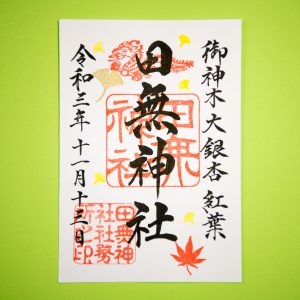 御神木大銀杏 紅葉
田無神社
令和三年十一月十三日
田無神社
田無神社社務所之印